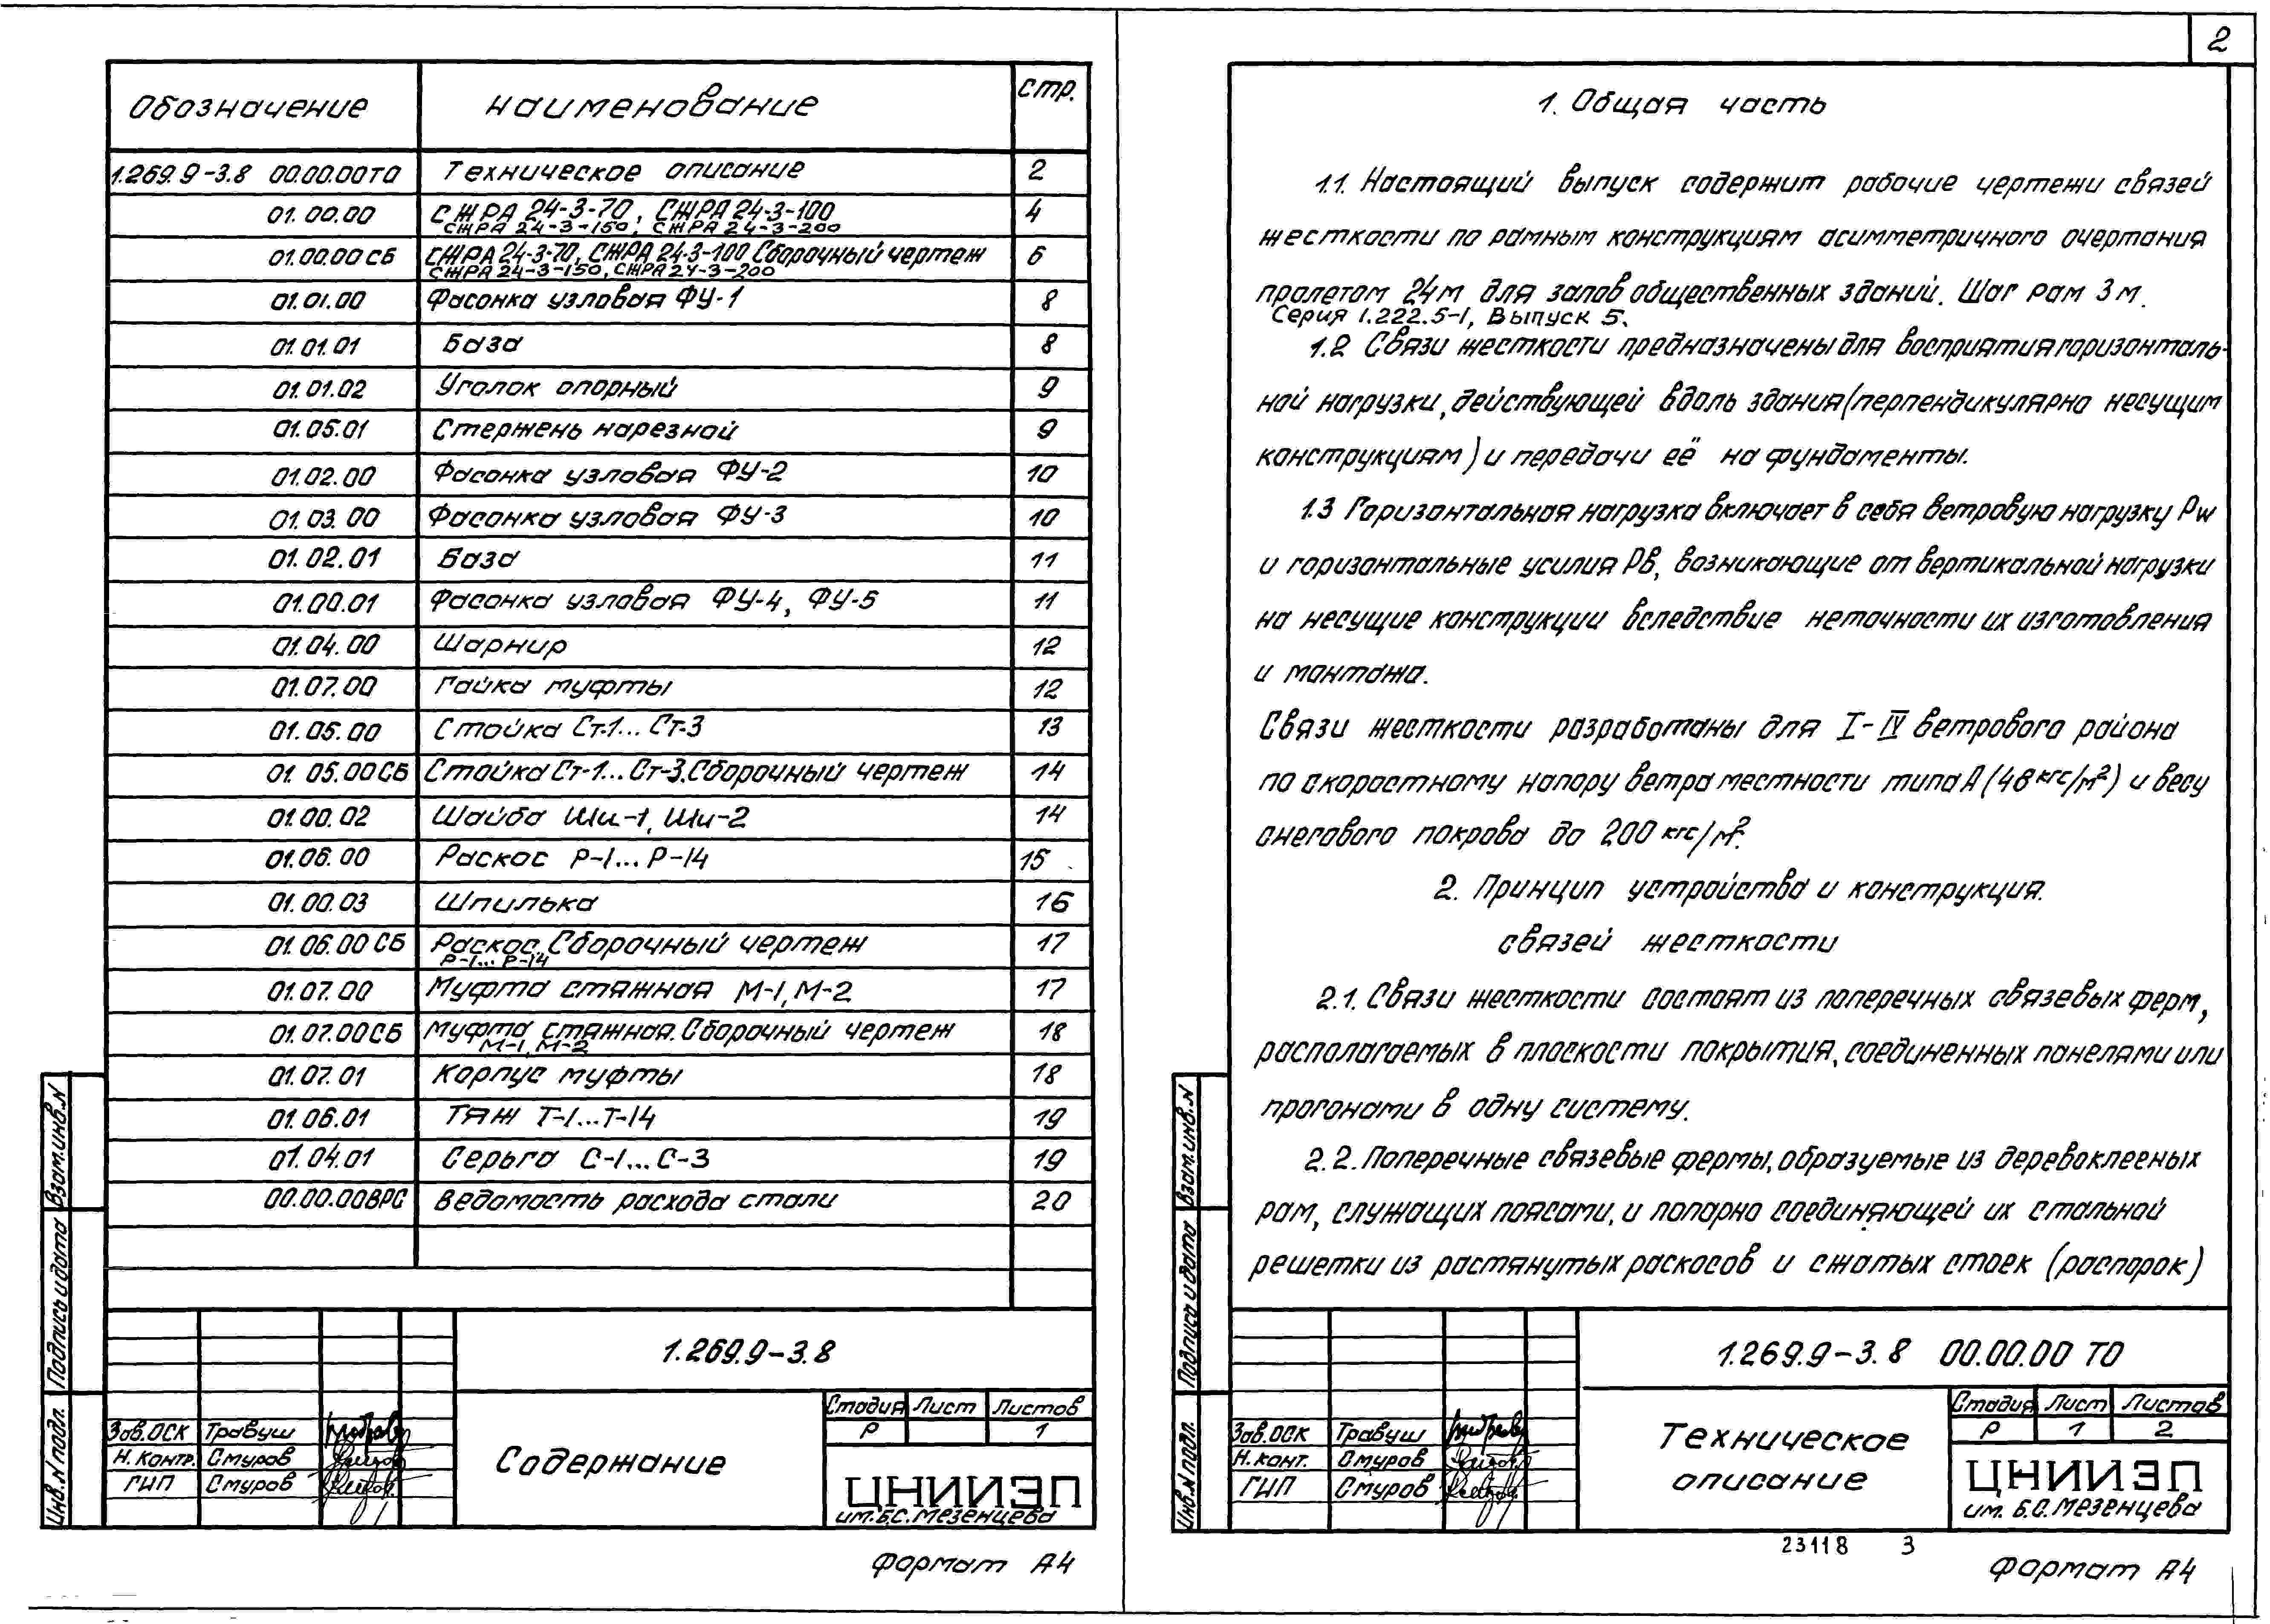 Обозначение Наименование Стр.
1.269.9-3.8 00.00.00ТО Техническое описание 2
01.00.00 СЖРА 24-3-70, СЖРА 24-3-100 4
СЖРА 24-3-150, СЖРА 24-3-200
01.00.00 СБ СЖРА 24-3-70, СЖРА 24-3-100 Сборочный чертеж 6
СЖРА 24-3-150, СЖРА 24-3-200
01.01.00 Фасонка узловая ФУ-1 8
01.01.01 База 8
01.01.02 Уголок опорный 9
01.05.01 Стержень нарезной 9
01.02.00 Фасонка узловая ФУ-2 10
01.03.00 Фасонка узловая ФУ-3 10
01.02.01 База 11
01.00.01 Фасонка узловая ФУ-4, ФУ-5 11
01.04.00 Шарнир 12
01.07.00 Гайка муфты 12
01.05.00 Стойка Ст-1... Ст-3 13
01.05.00 СБ Стойка Ст-1... Ст-3. Сборочный чертеж 14
01.00.02 Шайба Ши-1, Ши-2 14
01.06.00 Раскос Р-1... Р-14 15
01.00.03 Шпилька 16
01.06.00 СБ Раскос. Сборочный чертеж 17
Р-1... Р-14
01.07.00 Муфта стяжная М-1, М-2 17
01.07.00 СБ Муфта стяжная. Сборочный чертеж 18
М-1, М-2
01.07.01 Корпус муфты 18
01.06.01 ТЯЖ Т-1...Т-14 19
01.04.01 Серьга С-1... С-3 19
00.00.00ВРС Ведомость расхода стали 20
Взам.инв.N
Подпись и дата
Инв.N подл.
1.269.9-3.8
Стадия Лист Листов
Р 1
Зав.ОСК Травуш
Н. контр. Смуров
ГИП Смуров
Содержание
ЦНИИЭП
им. Б.С. Мезенцева
Формат А4
2
1. Общая часть
1.1. Настоящий выпуск содержит рабочие чертежи связей
жесткости по рамным конструкциям асимметричного очертания
пролетом 24м для залов общественных зданий. Шаг рам 3м.
Серия 1.222.5-1, Выпуск 5.
1.2 Связи жесткости предназначены для восприятия горизонталь-
ной нагрузки, действующей вдоль здания (перпендикулярно несущим
конструкциям) и передачи её на фундаменты.
1.3 Горизонтальная нагрузка включает в себя ветровую нагрузку Рw
и горизонтальные усилия Рв, возникающие от вертикальной нагрузки
на несущие конструкции вследствие неточности их изготовления
и монтажа.
Связи жесткости разработаны для I-IV ветрового района
по скоростному напору ветра местности типа А (48 кгс/м²) и весу
снегового покрова до 200 кгс/м².
2. Принцип устройства и конструкция.
связей жесткости
2.1. Связи жесткости состоят из поперечных связевых ферм,
располагаемых в плоскости покрытия, соединенных панелями или
прогонами в одну систему.
2.2. Поперечные связевые фермы, образуемые из деревоклееных
рам, служащих поясами, и попарно соединяющей их стальной
решетки из растянутых раскосов и сжатых стоек (распорок)
Взам.инв.N
Подпись и дата
Инв.N подл.
1.269.9-3.8 00.00.00 ТО
Стадия Лист Листов
Р 1 2
Зав.ОСК Травуш
Н. конт. Смуров
ГИП Смуров
Техническое
описание
ЦНИИЭП
им. Б.С. Мезенцева
23118 3
Формат А4